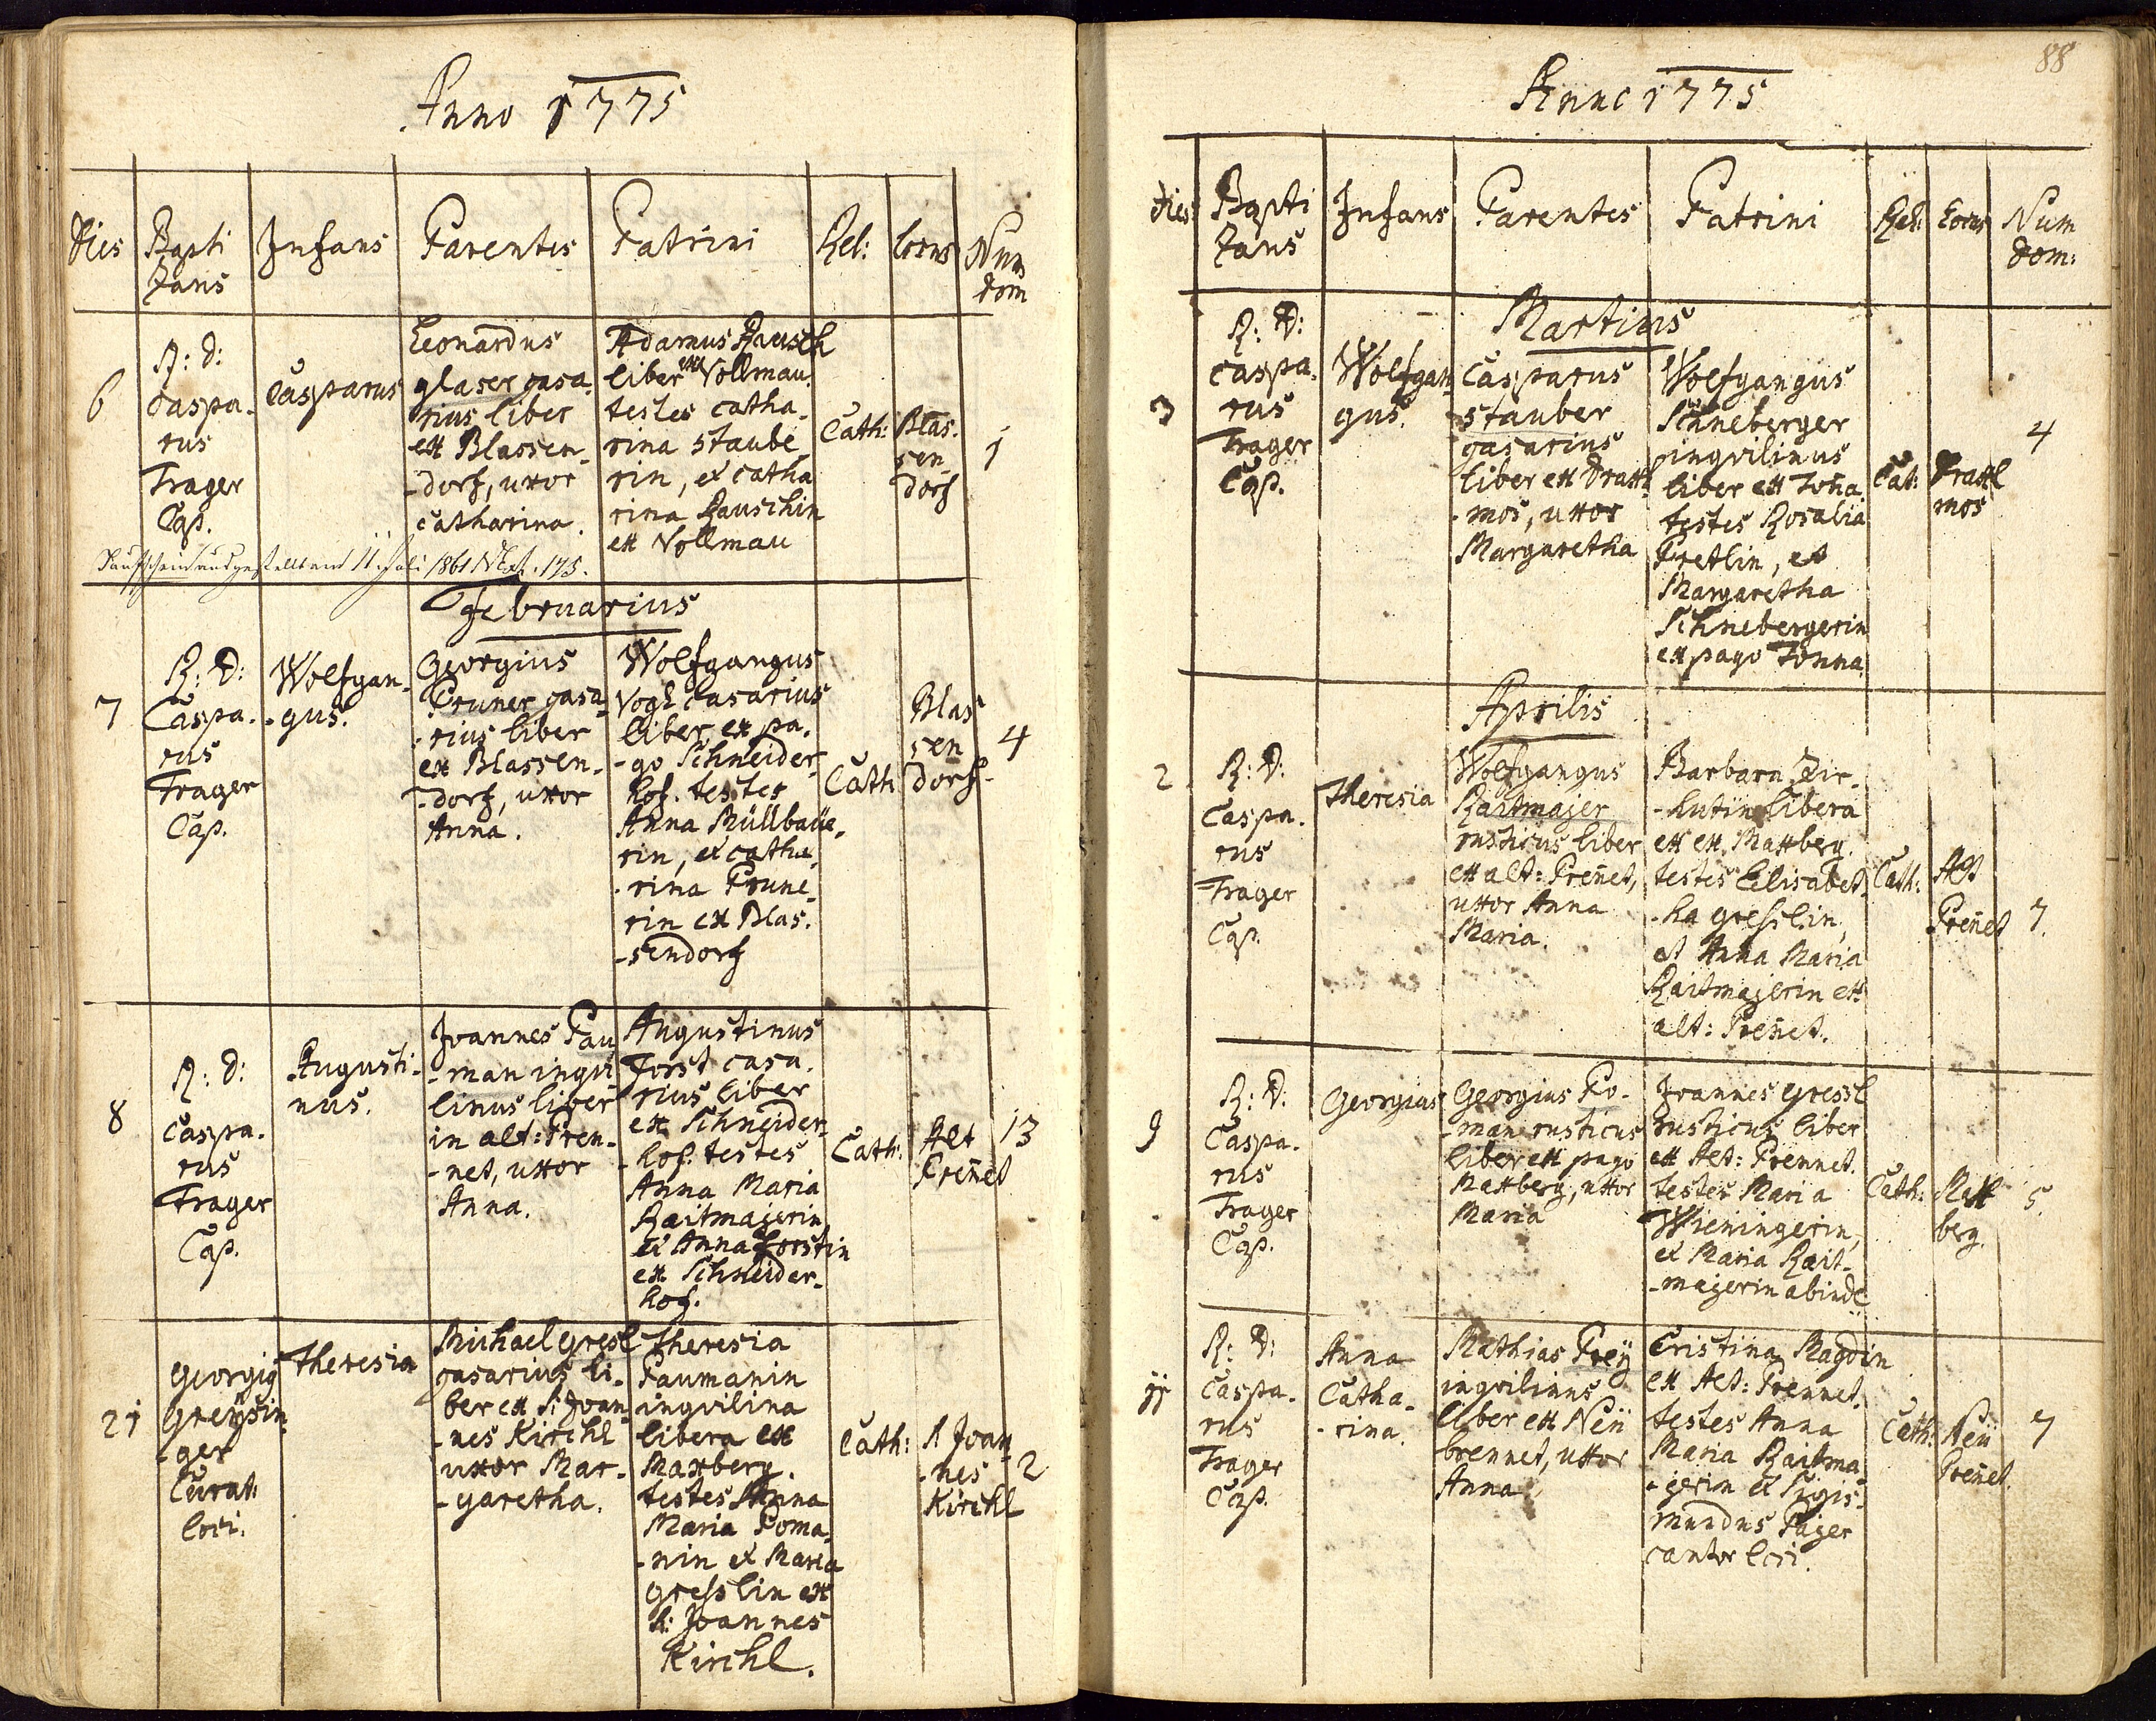 Anno 1775
Dies Bapti Infans Parentes Patrini Rel: Locus Num
zans dom
R: d:
6 Caspa-
rus
Trager
Cap.
Casparus
Leonardus
glaser casa-
rius liber
ex Blassen-
-dorf, uxor
catharina.
Adamus Rausch
liber ex Vollmau.
testes catha-
rina staube-
rin, et catha
rina Rauschin
ex Vollmau
Cath:
Blas-
sen-
dorf
1
Taufschein ausgestellt am 11. Juli 1861 175.
Februarius
7
R: D:
Caspa-
rus
Trager
Cap.
Wolfgan-
-gus.
Georgius
Pruner casa-
-rius liber
ex Blassen-
-dorf, uxor
Anna.
Wolfgangus
Vogl casarius
liber ex pa-
-go Schneider-
hof. testes
Anna Müllbaüe-
rin, et catha-
-rina Prune-
rin ex Blas-
-sendorf
Cath
Blas
sen
dorf
4
8
R: d:
Caspa-
rus
Trager
Cap.
Augusti-
nus.
Joannes Pau
-man inqvi
linus liber
in alt: Pren-
-net, uxor
Anna.
Augustinus
Forst casa-
rius liber
ex Schneider-
-hof. testes
Anna Maria
Raitmajerin,
et Anna Forstin
ex Schneider-
hof.
Cath:
Alt
Preñet
13
21
Georgig
Greÿsin-
-ger
Curat:
loci.
Theresia
Michael gresl
casarius li-
ber ex S: Joan-
-nes Kirchl
uxor Mar-
-garetha.
Theresia
Paumanin
inqvilina
libera ex
Maxberg.
testes Anna
Maria Poma-
-nin et Maria
gresslin ex
S: Joannes
Kirchl.
Cath:
S Joan-
-nes
Kirchl
2
88
Anno 1775
Dies Bapti Infans Parentes Patrini Rel: Locus Num
zans dom:
Martius
3
R: D:
Caspa-
rus
Trager
Cap.
Wolfgan-
gus.
Casparus
stauber
casarius
liber ex Draxl-
-mos, uxor
Margaretha
Wolfgangus
Schneberger
inqvilinus
liber ex Toña.
testes Rosalia
Pretlin, et
Margaretha
Schnebergerin
ex pago Tonna.
Cat:
Draxl
mos
4
Aprilis
2
R: D:
Caspa-
rus
Trager
Cap.
Theresia
Wolfgangus
Raitmajer
rusticus liber
ex alt: Preñet,
uxor Anna
Maria.
Barbara Zir-
-hutin libera
ex ex Maxberg.
testes Elisabet-
-ha gresslin,
et Anna Maria
Raitmajerin ex
alt: Preñet.
Cath:
Alt
Preñet
7.
9
R: D:
Caspa-
rus
Trager
Cap.
Georgius
Georgius Po-
-man rusticus
liber ex pago
Maxberg, uxor
Maria
Joannes gressl
rusticus liber
ex Alt: Prennet.
testes Maria
Wieningerin,
et Maria Rait-
-majerin abinde
Cath:
Max
berg.
5
11
R: D:
Caspa-
rus
Trager
Cap.
Anna
Catha-
-rina.
Mathias Preÿ
inqvilinus
liber ex Neü
brennet, uxor
Anna
Cristina Magdin
ex Alt: Prennet.
testes Anna
Maria Raitma-
-jerin et Sigis-
mundus Pajer
cantor loci.
Cath:
Neü
Preñet.
7